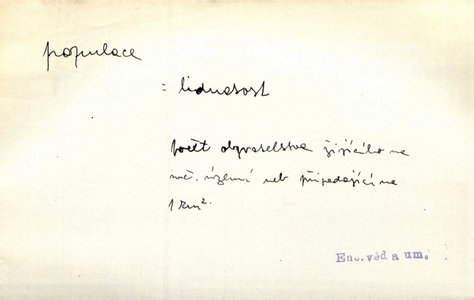 populace
= lidnatost
počet obyvatelstva žijícího na
urč. území neb připadající na
1 km².
Enc. věd a um.